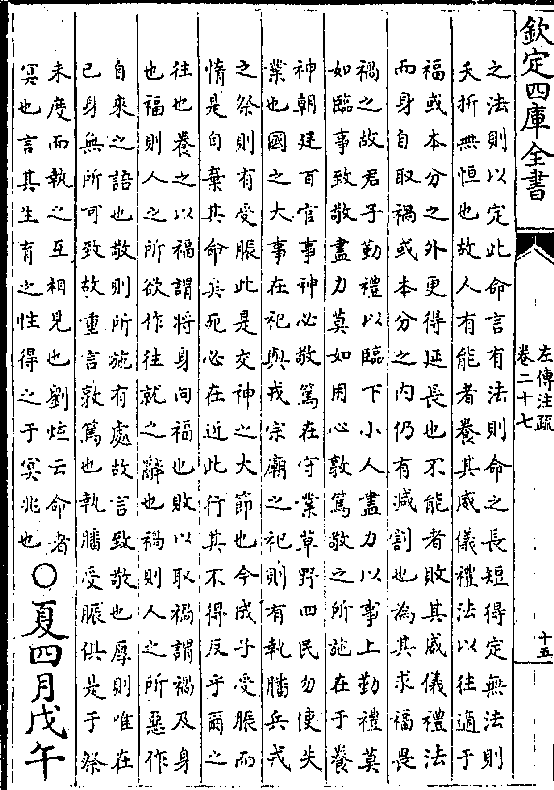 欽定四庫全書
左傳注疏
卷二十七
十五
之法則以定此命言有法則命之長短得定無法則
夭折無恒也故人有能者養其威儀禮法以往適于
福或本分之外更得延長也不能者敗其威儀禮法
而身自取禍或本分之内仍有減割也為其求福畏
禍之故君子勤禮以臨下小人盡力以事上勤禮莫
如臨事致敬盡力莫如用心敦篤敬之所施在于養
神朝廷百官事神必敬篤在守業草野四民勿使失
業也國之大事在祀與戎宗廟之祀則有執膰兵戎
之祭則有受脤此是交神之大節也今成子受脤而
惰是自棄其命矣死必在近此行其不得反乎爾之
往也養之以福謂將身向福也敗以取禍謂禍及身
也福則人之所欲作往就之辭也禍則人之所惡作
自來之語也敬則所施有處故言致敬也厚則唯在
已身無所可致故重言敦篤也執膰受脤俱是于祭
未度而執之互相見也劉炫云命者
冥也言其生育之性得之于冥兆也
○夏四月戊午